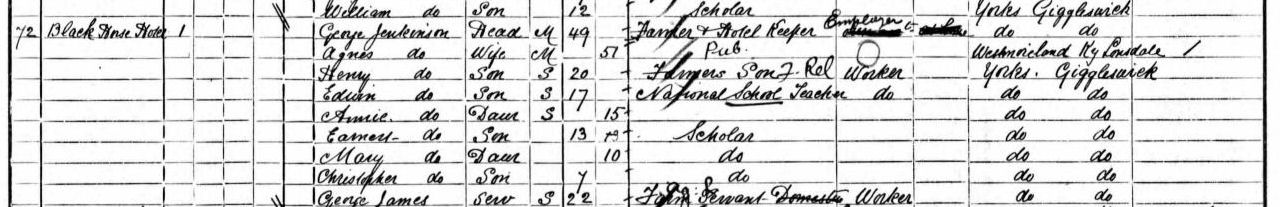 William do Son 12 Scholar Yorks Giggleswick
72 Black Horse Hotel 1 George Jenkinson Head M 49 Farmer & Hotel Keeper Employer do do
Agnes do Wife M 51 Pub. Westmoreland Ky Lonsdale /
Henry do Son S 20 Farmers Son F. Rel Worker Yorks. Giggleswick
Edwin do Son S 17 National School Teacher do do do
Annie do Daur S 15 do do
Earnest do Son 13 Scholar do do
Mary do Daur 10 do do do
Christopher do Son 7 do do do
George James Serv S 22 Farm Servant Domestic Worker do do